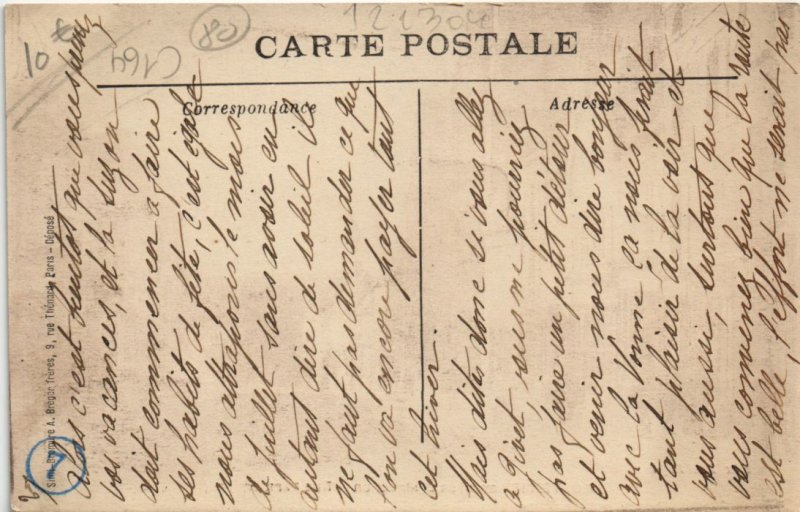 122304
80
10
C164
CARTE POSTALE
Correspondance
Adresse
Simi-Bromure A. Breger frères, 9, rue Thénard, Paris - Déposé
7
mais c'est bientot que vous prenez
vos vacances, et la Suzon
doit commencer a faire
ses habits de fête, c'est que
nous attrapons le mois
de juillet sans avoir eu
autant dire de soleil il
ne faut pas demander ce que
l'on va encore payer tout
cet hiver.
Mais dites donc si vous allez
a vous ne pourriez
pas faire un petit détour
et venir nous dire bonjour
avec la Nonne ça nous ferait
tant plaisir de la voir et
vous aussi, surtout que
vous convenez bien que la route
est belle, l'effort ne serait pas